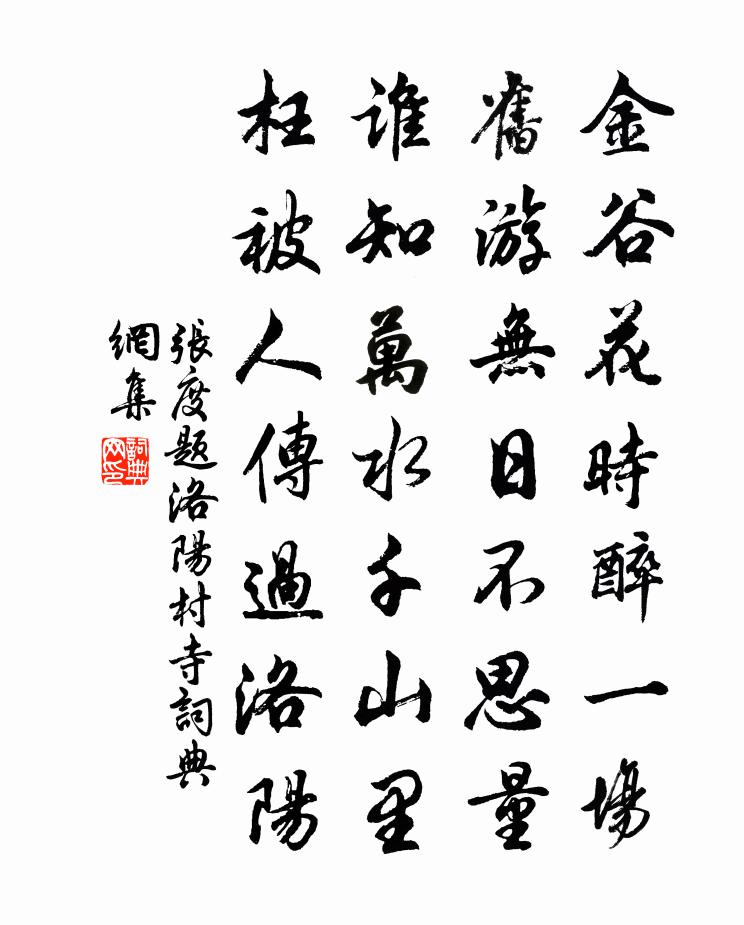 金谷花時醉一場
舊游無日不思量
誰知萬水千山里
枉被人傳過洛陽
張度題洛陽村寺詞典
網集
詞典
网印